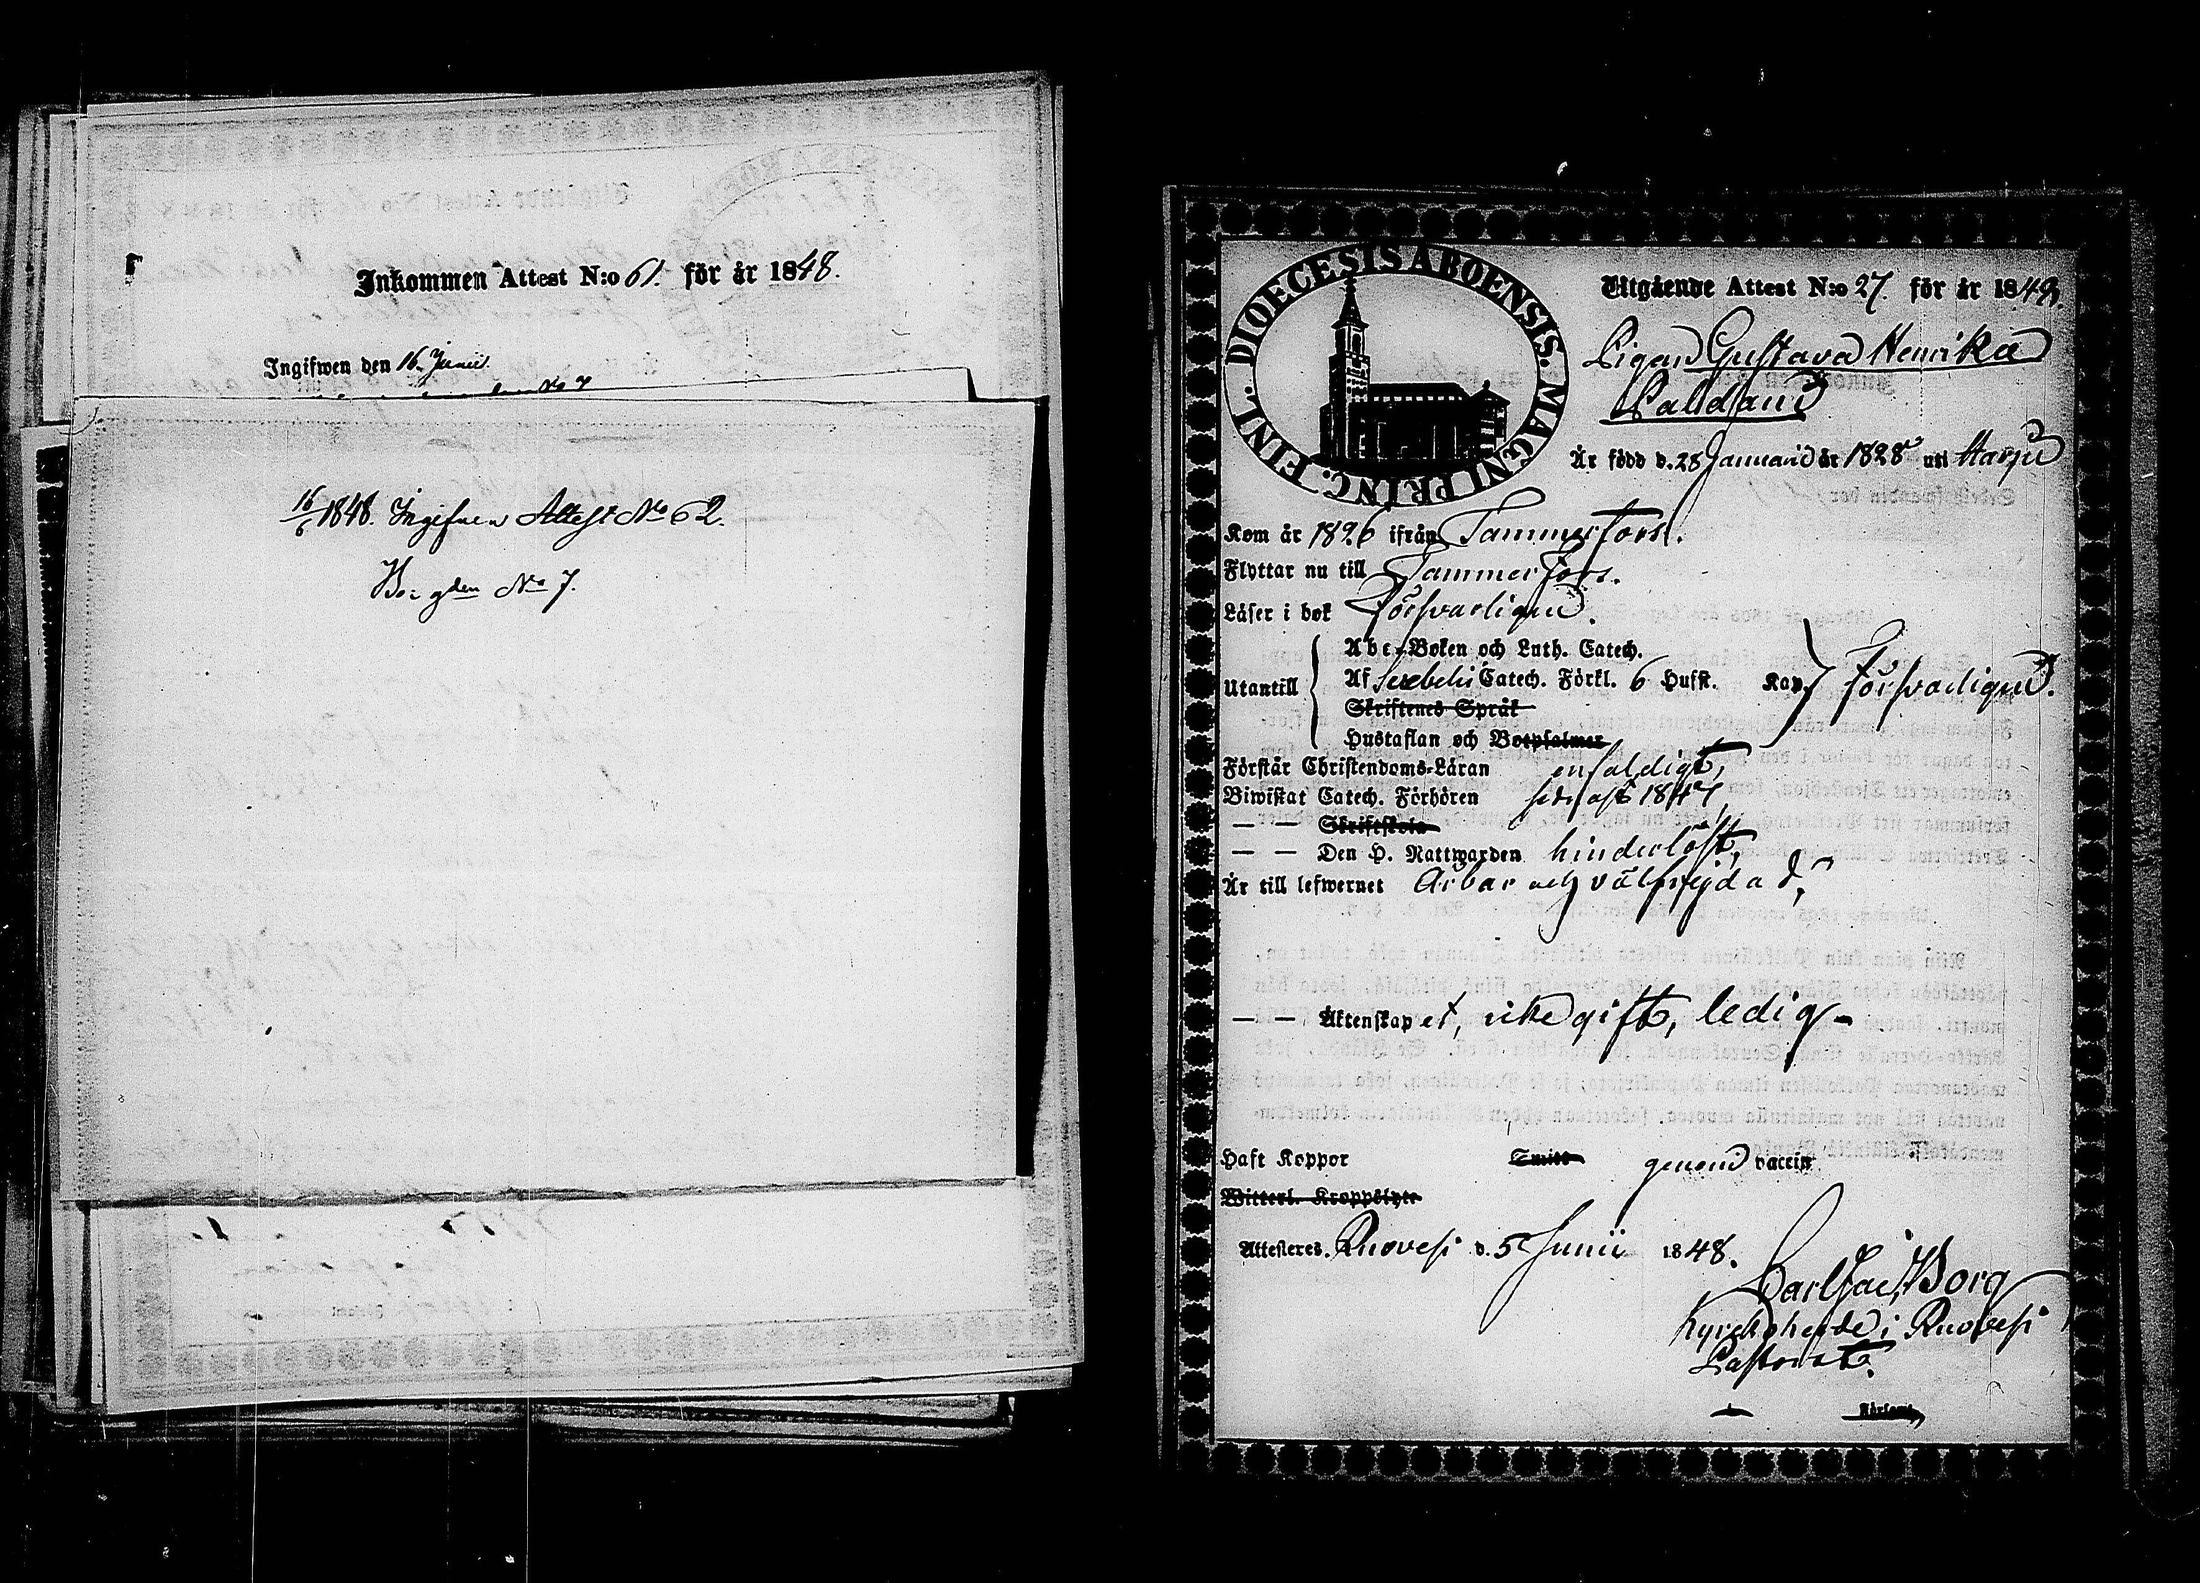 Inkommen Attest N:o 61. för år 1848.
Ingifwen den 16 Junii
16/6 1848. Ingifven Attest No 62.
Boigden No 7.
DIOECESIS ABOENSIS. MAGNI PRINC. FINL.
Utgående Attest N:o 27. för år 1848.
Pigan Gustava Henrika
Är född d. 28 Januarii år 1828 uti Harju
Kom år 1826 ifrån Tammerfors.
Flyttar nu till Tammerfors.
Läser i bok Försvarligen.
Abc-Boken och Luth. Catech.
Utantill Af Serebelii Catech. Förkl. 6 Hufst. Kap. Försvarligen.
Skriftenes Språk
Hustaflan och Botpsalmer
Förstår Christendoms-Läran enfaldigt,
Biwistat Catech. Förhören sednast 1847
— — Skriftskola
— — Den H. Nattwarden hinderlöst,
Är till lefwernet Ärbar och välfrejdad,
— — Äktenskapet, icke gift, ledig-
Haft Koppor genom vaccin
Witterl. Kroppslyte
Attesteras. Ruovesi d. 5 Junii 1848.
Carl Jac. Borg
Kyrckoherde i Ruovesi
Pastorat.